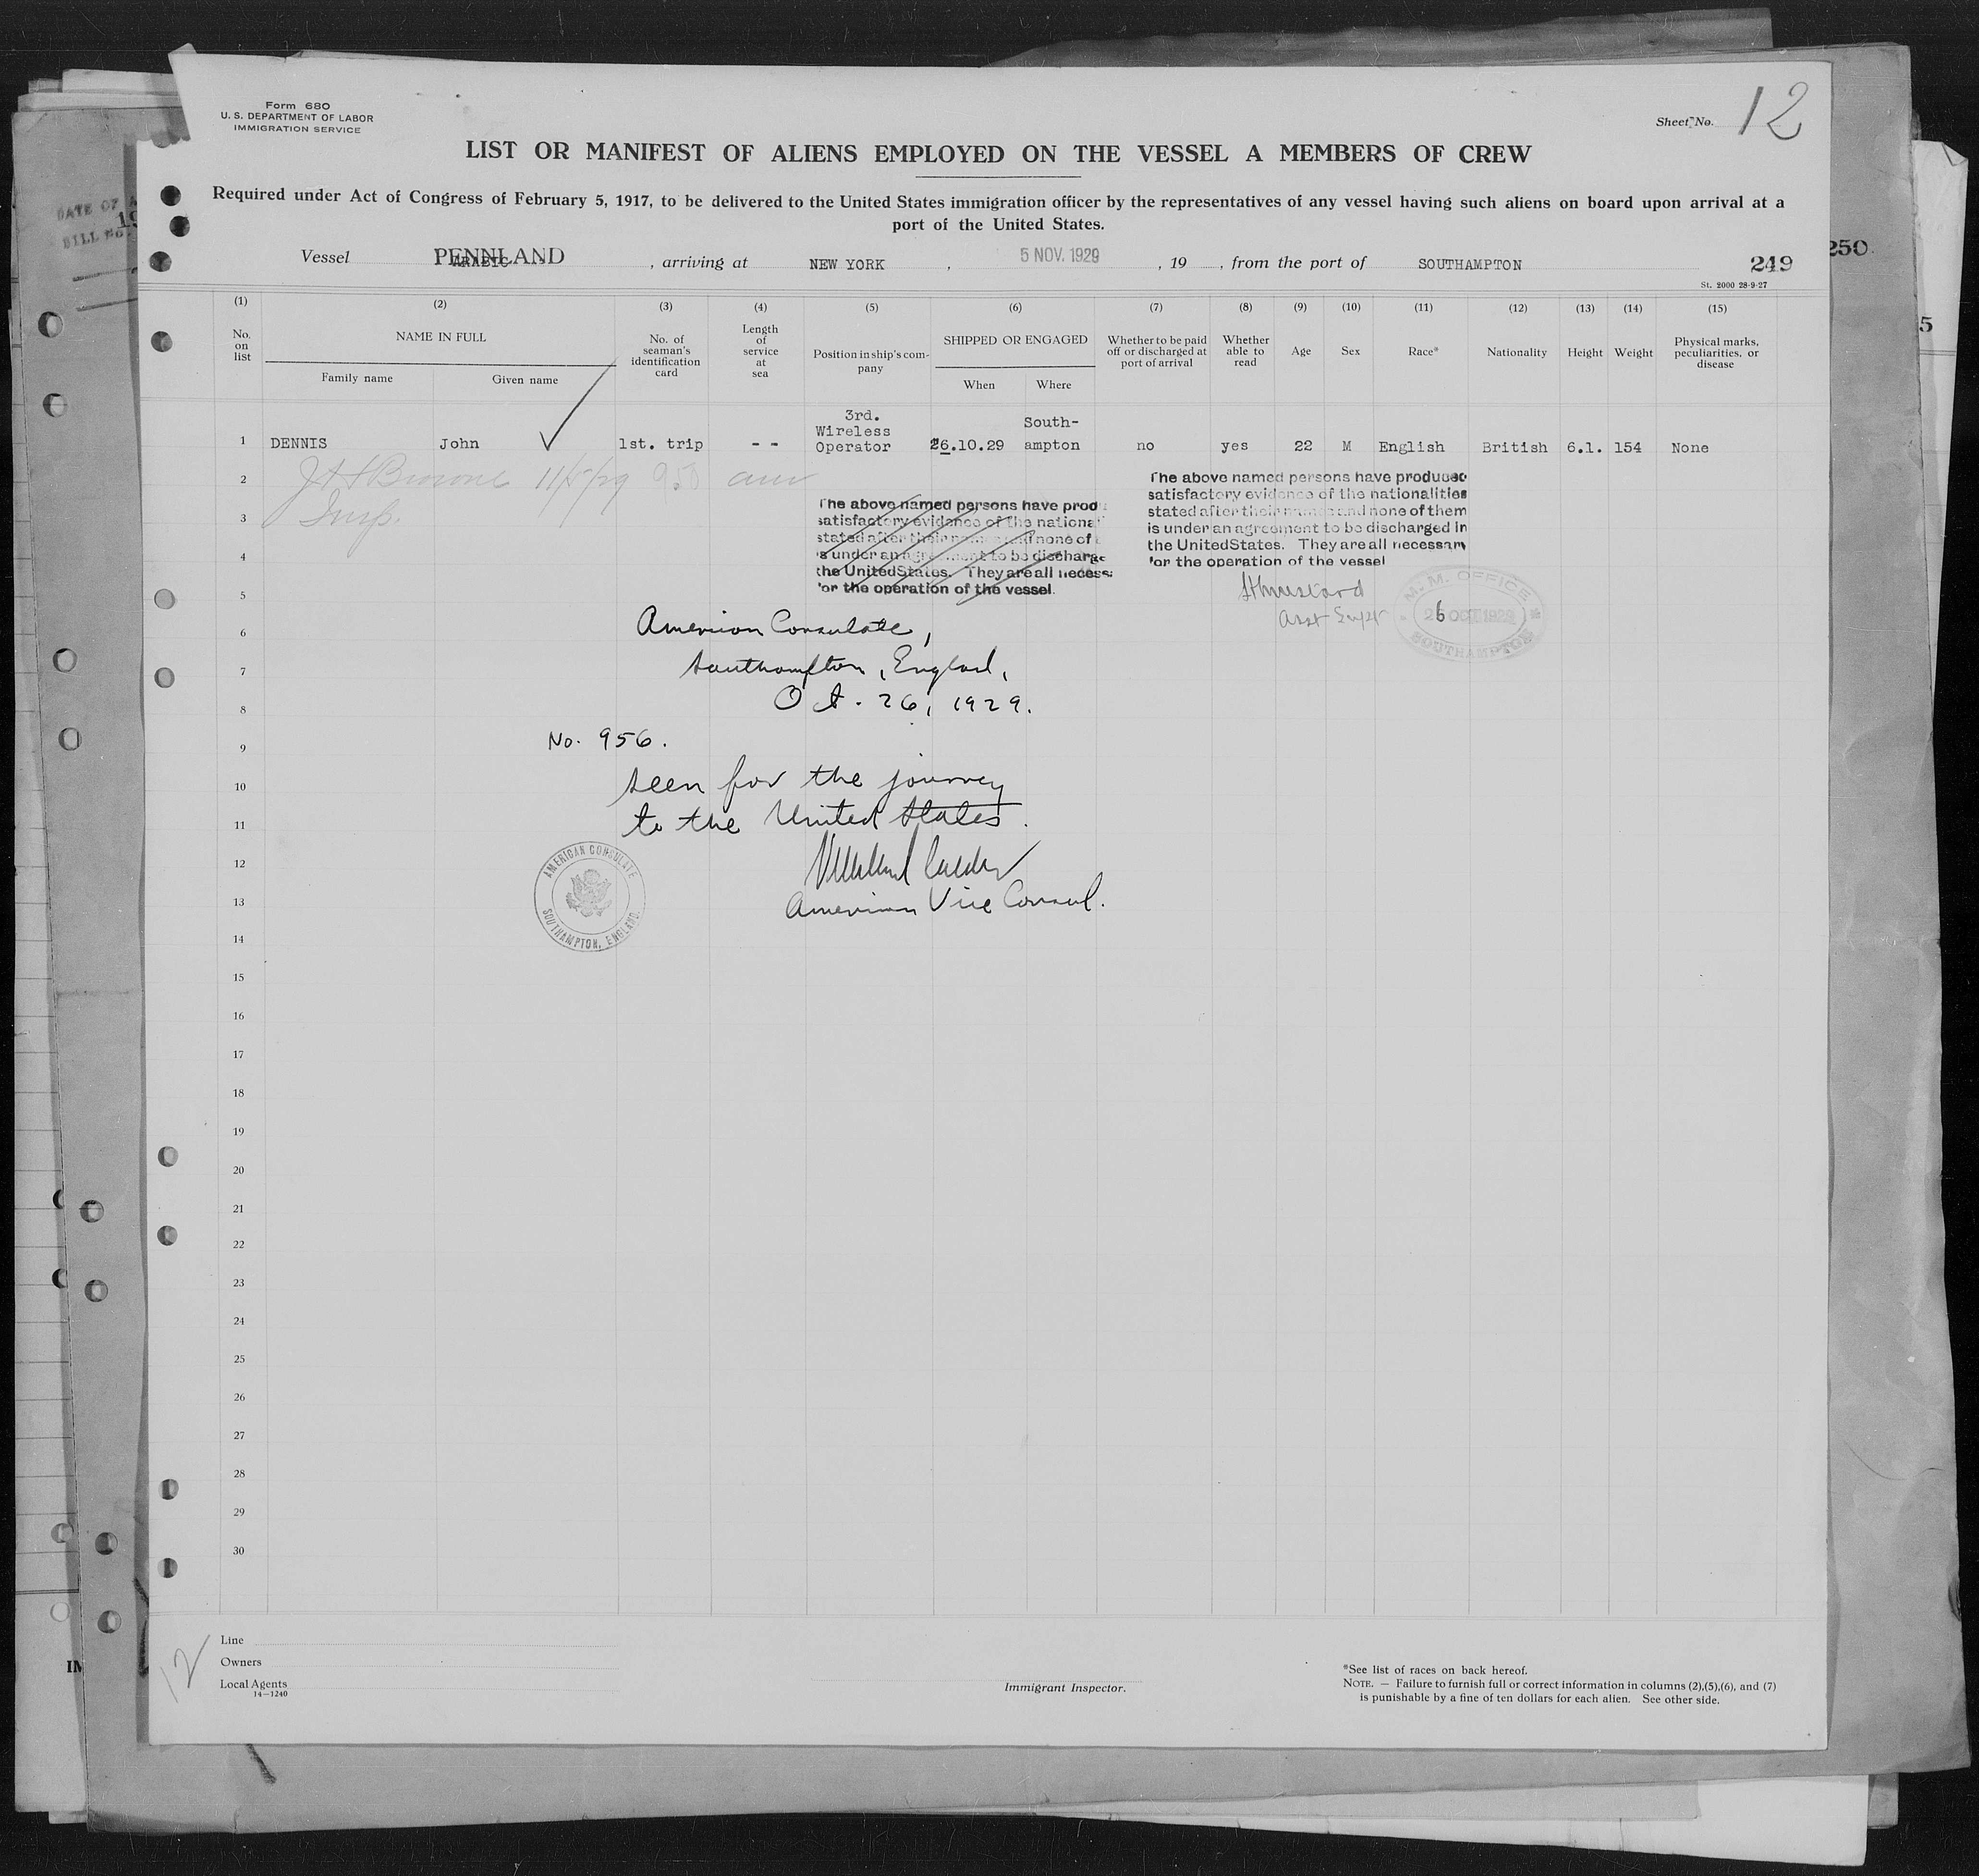 Form 680
U. S. DEPARTMENT OF LABOR
IMMIGRATION SERVICE
Sheet No. 12
LIST OR MANIFEST OF ALIENS EMPLOYED ON THE VESSEL A MEMBERS OF CREW
Required under Act of Congress of February 5, 1917, to be delivered to the United States immigration officer by the representatives of any vessel having such aliens on board upon arrival at a
port of the United States.
Vessel PENNLAND ARABIC, arriving at NEW YORK, 5 NOV. 1929, 19, from the port of SOUTHAMPTON 249
250
St. 2000 28-9-27
(1) (2) (3) (4) (5) (6) (7) (8) (9) (10) (11) (12) (13) (14) (15)
No. on list
NAME IN FULL
Family name Given name
No. of seaman's identification card
Length of service at sea
Position in ship's company
SHIPPED OR ENGAGED
When Where
Whether to be paid off or discharged at port of arrival
Whether able to read
Age
Sex
Race*
Nationality
Height
Weight
Physical marks, peculiarities, or disease
1 DENNIS John 1st. trip - - 3rd. Wireless Operator 26.10.29 South-ampton no yes 22 M English British 6.1. 154 None
2 11/5/29
3 Insp.
The above named persons have prod
satisfactory evidence of the nationa
stated after their names and none of
is under an agreement to be discharge
the United States. They are all necess
for the operation of the vessel.
The above named persons have produced
satisfactory evidence of the nationalities
stated after their names and none of them
is under an agreement to be discharged in
the United States. They are all necessary
for the operation of the vessel
Asst Supt
M.M. OFFICE
26 OCT 1929
SOUTHAMPTON
4
5
6 American Consulate,
7 Southampton, England,
8 Oct. 26, 1929.
9 No. 956.
10 Seen for the journey
11 to the United States.
12
13 American Vice Consul.
AMERICAN CONSULATE
SOUTHAMPTON, ENGLAND.
14
15
16
17
18
19
20
21
22
23
24
25
26
27
28
29
30
12
Line
Owners
Local Agents
14—1240
Immigrant Inspector.
*See list of races on back hereof.
NOTE. — Failure to furnish full or correct information in columns (2),(5),(6), and (7)
is punishable by a fine of ten dollars for each alien. See other side.